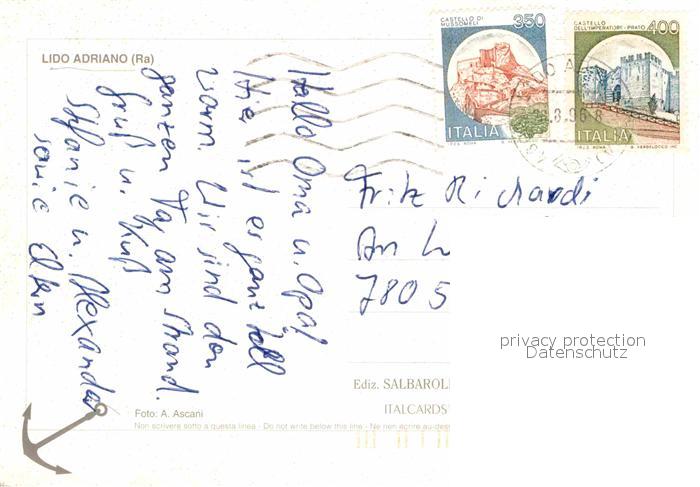 LIDO ADRIANO (Ra)
Hallo Oma u. Opa!
Hier ist es ganz toll
warm. Wir sind den
ganzen Tag am Strand.
Gruß u. Kuß
Stefanie u. Alexander
sowie Eltern
CASTELLO DI
MUSSOMELI
350
ITALIA
CASTELLO
DELL'IMPERATORE - PRATO
400
ITALIA
Fritz Richardi
An
7805
privacy protection
Datenschutz
Ediz. SALBAROLI
ITALCARDS
Foto: A. Ascani
Non scrivere sotto a questa linea - Do not write below this line - Ne rien écrire au-des